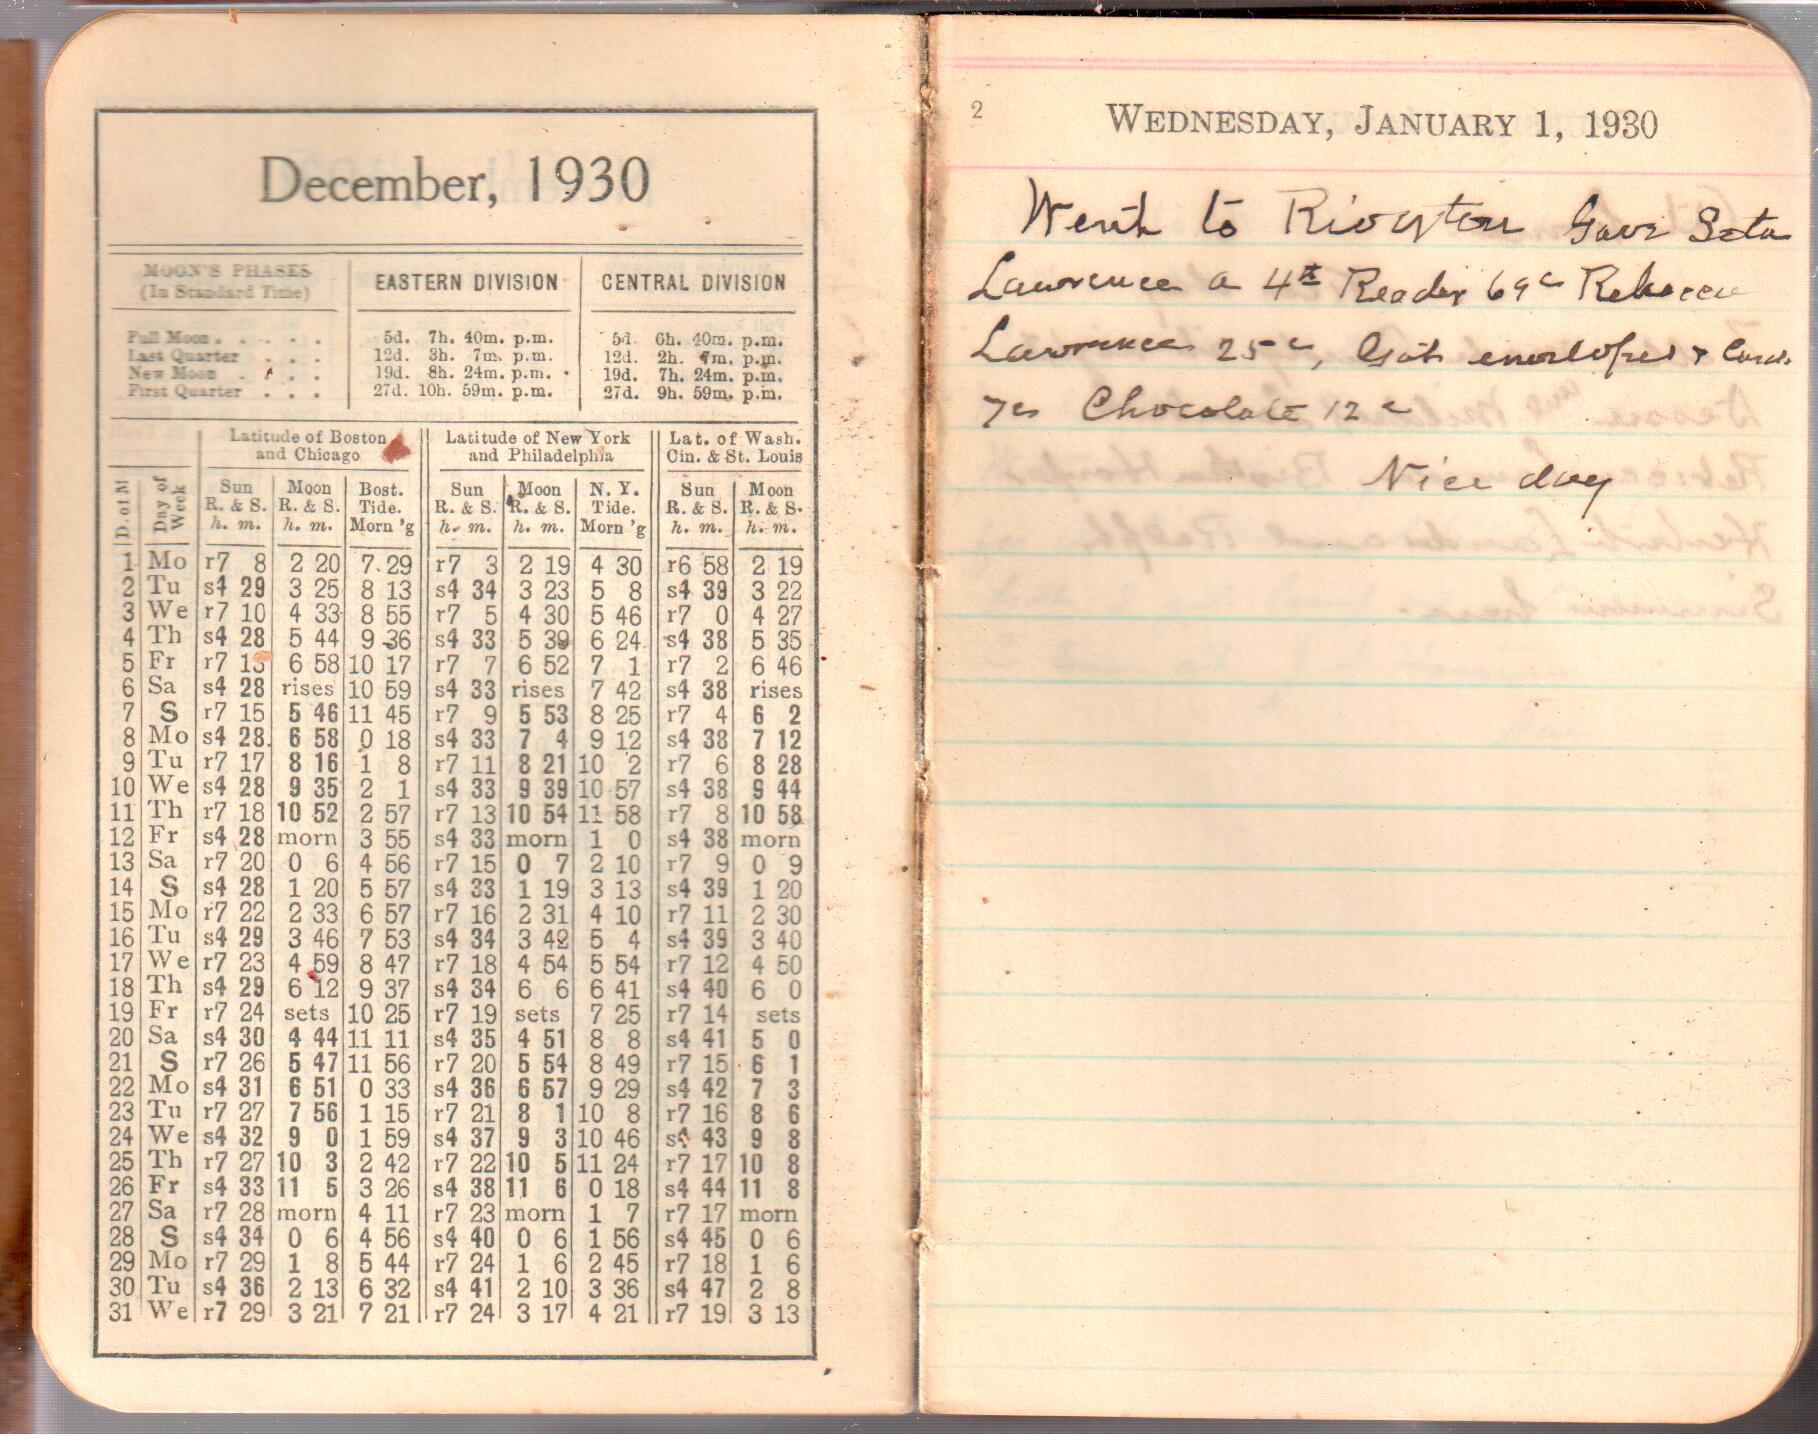 December, 1930
MOON'S PHASES
(In Standard Time)
EASTERN DIVISION
CENTRAL DIVISION
Full Moon . . . . . 5d. 7h. 40m. p.m. 5d. 6h. 40m. p.m.
Last Quarter . . . 12d. 3h. 7m. p.m. 12d. 2h. 7m. p.m.
New Moon . . . . 19d. 8h. 24m. p.m. 19d. 7h. 24m. p.m.
First Quarter . . . 27d. 10h. 59m. p.m. 27d. 9h. 59m. p.m.
Latitude of Boston and Chicago
Latitude of New York and Philadelphia
Lat. of Wash. Cin. & St. Louis
D. of M Day of Week Sun R. & S. h. m. Moon R. & S. h. m. Bost. Tide. Morn'g Sun R. & S. h. m. Moon R. & S. h. m. N. Y. Tide. Morn'g Sun R. & S. h. m. Moon R. & S. h. m.
1 Mo r7 8 2 20 7 29 r7 3 2 19 4 30 r6 58 2 19
2 Tu s4 29 3 25 8 13 s4 34 3 23 5 8 s4 39 3 22
3 We r7 10 4 33 8 55 r7 5 4 30 5 46 r7 0 4 27
4 Th s4 28 5 44 9 36 s4 33 5 39 6 24 s4 38 5 35
5 Fr r7 13 6 58 10 17 r7 7 6 52 7 1 r7 2 6 46
6 Sa s4 28 rises 10 59 s4 33 rises 7 42 s4 38 rises
7 S r7 15 5 46 11 45 r7 9 5 53 8 25 r7 4 6 2
8 Mo s4 28 6 58 0 18 s4 33 7 4 9 12 s4 38 7 12
9 Tu r7 17 8 16 1 8 r7 11 8 21 10 2 r7 6 8 28
10 We s4 28 9 35 2 1 s4 33 9 39 10 57 s4 38 9 44
11 Th r7 18 10 52 2 57 r7 13 10 54 11 58 r7 8 10 58
12 Fr s4 28 morn 3 55 s4 33 morn 1 0 s4 38 morn
13 Sa r7 20 0 6 4 56 r7 15 0 7 2 10 r7 9 0 9
14 S s4 28 1 20 5 57 s4 33 1 19 3 13 s4 39 1 20
15 Mo r7 22 2 33 6 57 r7 16 2 31 4 10 r7 11 2 30
16 Tu s4 29 3 46 7 53 s4 34 3 42 5 4 s4 39 3 40
17 We r7 23 4 59 8 47 r7 18 4 54 5 54 r7 12 4 50
18 Th s4 29 6 12 9 37 s4 34 6 6 6 41 s4 40 6 0
19 Fr r7 24 sets 10 25 r7 19 sets 7 25 r7 14 sets
20 Sa s4 30 4 44 11 11 s4 35 4 51 8 8 s4 41 5 0
21 S r7 26 5 47 11 56 r7 20 5 54 8 49 r7 15 6 1
22 Mo s4 31 6 51 0 33 s4 36 6 57 9 29 s4 42 7 3
23 Tu r7 27 7 56 1 15 r7 21 8 1 10 8 r7 16 8 6
24 We s4 32 9 0 1 59 s4 37 9 3 10 46 s4 43 9 8
25 Th r7 27 10 3 2 42 r7 22 10 5 11 24 r7 17 10 8
26 Fr s4 33 11 5 3 26 s4 38 11 6 0 18 s4 44 11 8
27 Sa r7 28 morn 4 11 r7 23 morn 1 7 r7 17 morn
28 S s4 34 0 6 4 56 s4 40 0 6 1 56 s4 45 0 6
29 Mo r7 29 1 8 5 44 r7 24 1 6 2 45 r7 18 1 6
30 Tu s4 36 2 13 6 32 s4 41 2 10 3 36 s4 47 2 8
31 We r7 29 3 21 7 21 r7 24 3 17 4 21 r7 19 3 13
2
WEDNESDAY, JANUARY 1, 1930
Went to Gave
Lawrence a 4th Reader 69c Rebecca
Lawrence 25c, Got envelopes &
Chocolate 12c
Nice day